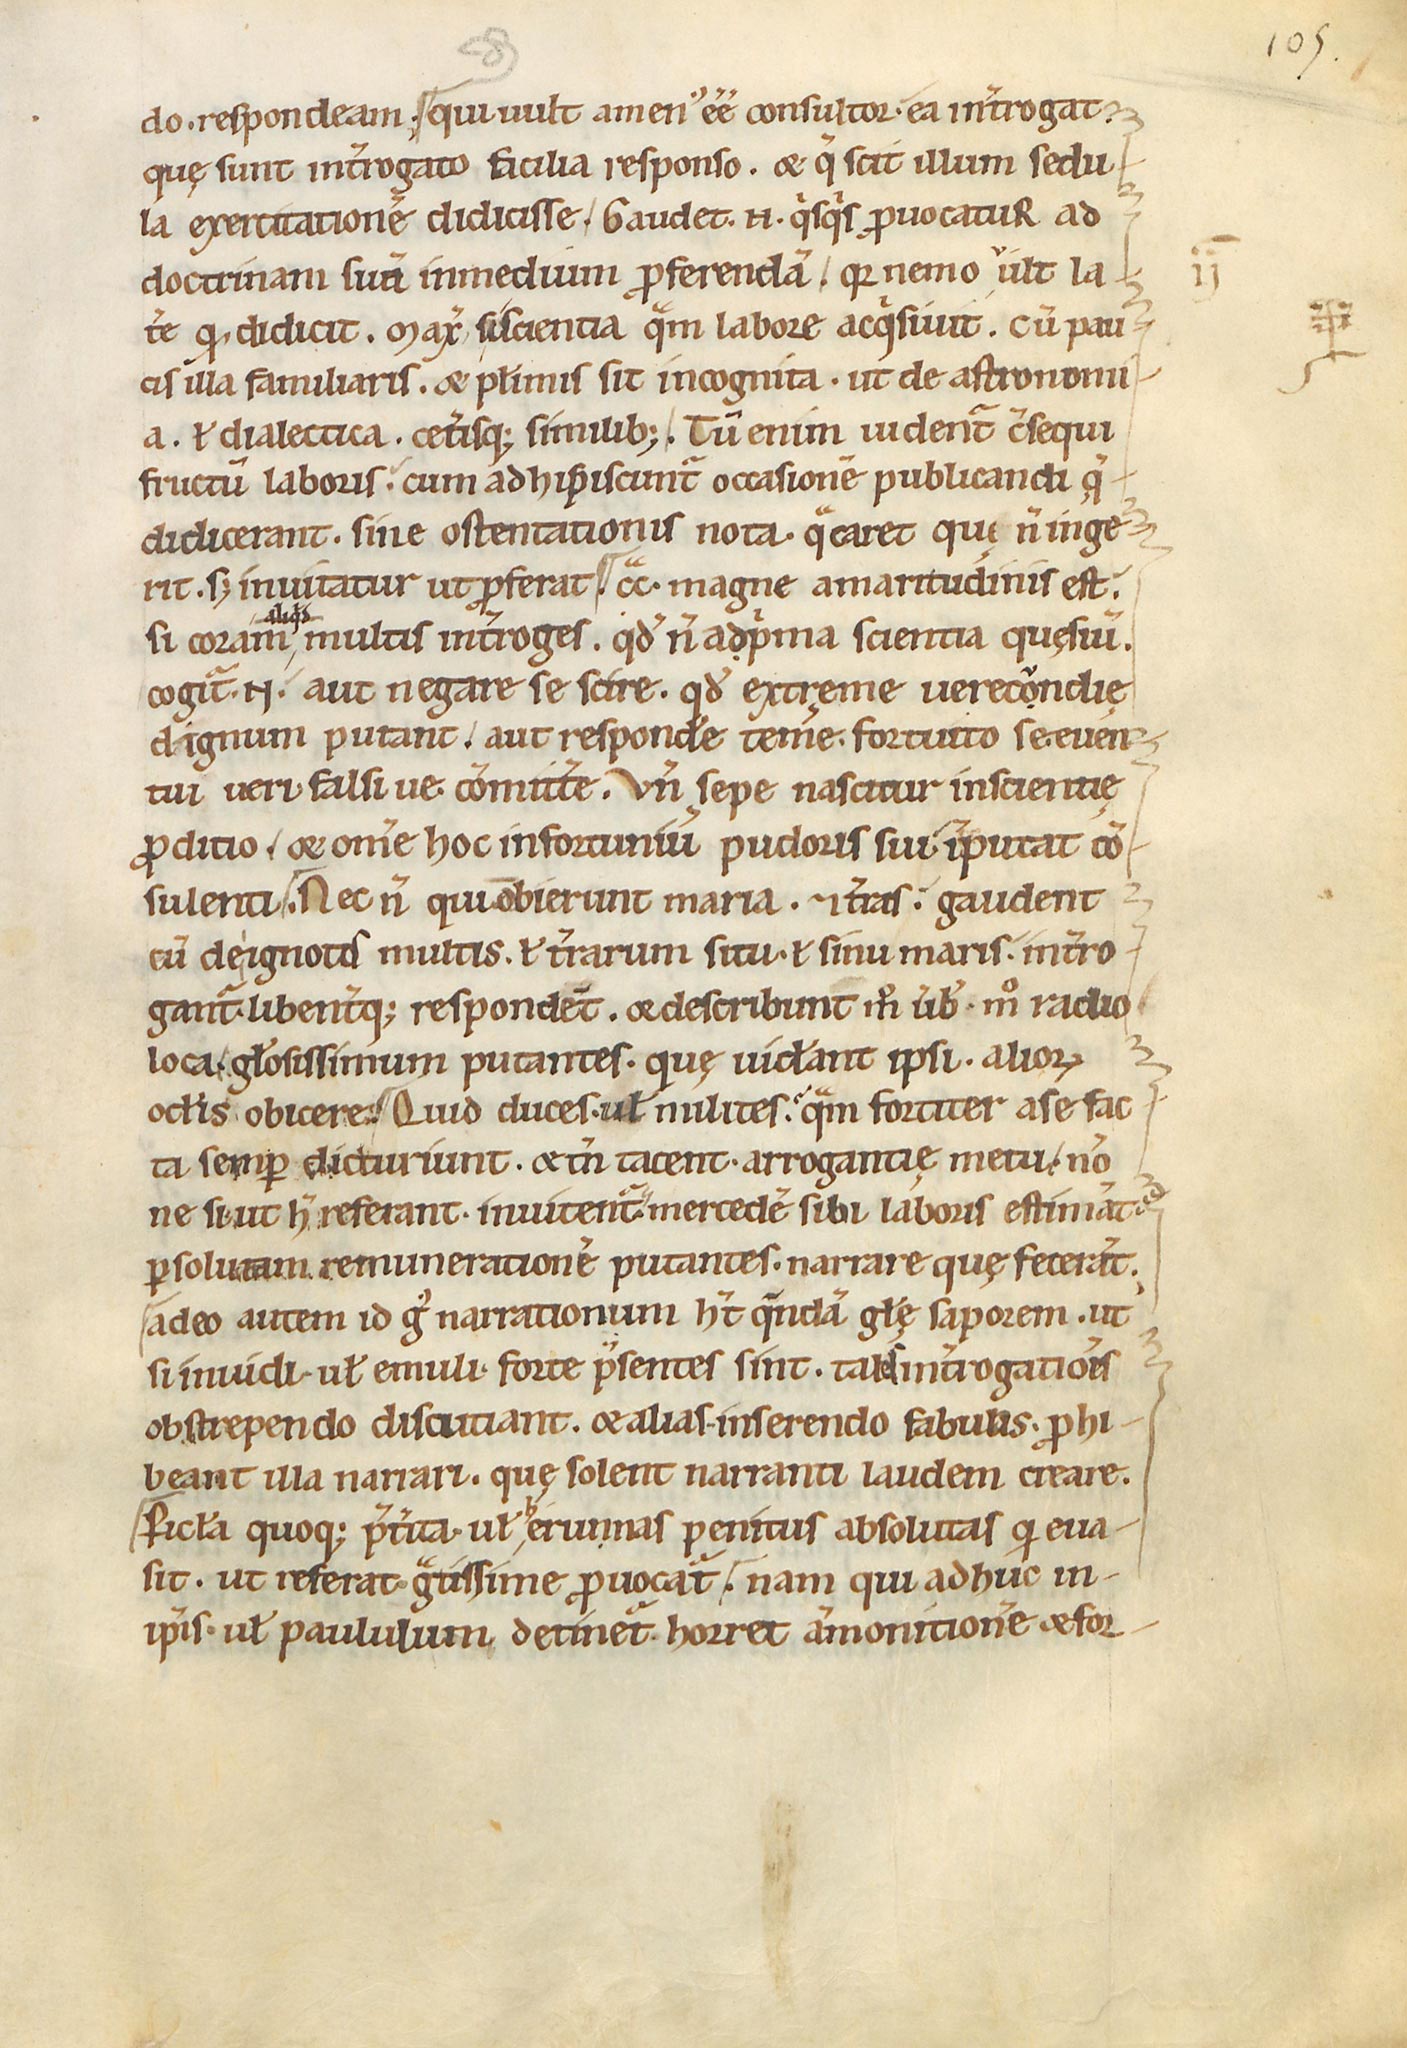 105.
do. respondeam. qui uult amen᷒ ee̅ consultor. ea int̅rogat
quę sunt int̅rogato facilia responso. & q̅ scit illum sedu
la exercitatione̅ didicisse. Gaudet .N. q̅sq̅s ꝓuocatuR ad
doctrinam sua̅ inmedium ꝓferenda̅. qr nemo uult la
te̅ qd didicit. Max̅ si scientia qᵃm labore acq̅siuit. cu̅ pau
cis illa familiaris. & pl̅imis sit incognita. ut de astronomi
a. ł dialectica. cet̅isq; similib;. Tu̅ enim uident᷑ c̅sequi
fructu̅ laboris. cum adhipiscunt᷑ occasione̅ publicandi q̅
didicerant. sine ostentationis nota. qᵃ caret quę n̅ inge
rit. s; inuitatur ut ꝓferat. cᵃ. magne amaritudinis est.
aliq̅s
si coram multis int̅roges. qđ n̅ adp̅ma scientia quęsiu̅.
cogit᷑ .N. aut negare se scire. qđ extreme verecu̅ndię
dignum putant. aut responde̅ teme̅. fortuito se euen
tui ueri falsi ue. co̅mitte̅. Vn̅ sepe nascitur inscientię
ꝓditio. & om̅e hoc infortuniu̅ pudoris sui i̅putat co̅
sulenti. Nec n̅ qui obierunt maria. & t̅ras. gaudent
cu̅ de ignotis multis. ł t̅rarum situ. ł sinu maris. int̅ro
gant᷑. libent̅q; respondet̅. & describunt m° u̅b̅. m° radio
loca. gło̅sissimum putantes. quę uideł̅ant ipsi. alioꝝ
ocl̅is obicere. Quid duces. uł milites. qᵃm fortiter a se fac
ta semꝑ dicturiunt. & tn̅ tacent. arrogantię metu. no̅
ne si ut h̅ referant. inuitent᷑. mercede̅ sibi laboris estima̅t
ꝑsolutam remuneratione̅ putantes. narrare quę fecera̅t.
adeo autem id g̅ narrationum h̅t q̅nda̅ głę saporem. ut
si inuidi. uł emuli. forte p̅sentes sint. tales int̅rogatio̅is
obstrependo discutiant. & alias inserendo fabulas. ꝓhi
beant illa narrari. quę solent narranti laudem creare.
Picł̅a quoq; p̅t̅ita. uł erumnas penitus absolutas qi eua
sit. ut referat. gᵃtissime ꝓuocat᷑. nam qui adhuc in
ip̅is. uł paululum detinet᷑. horret a̅monitione̅ & for